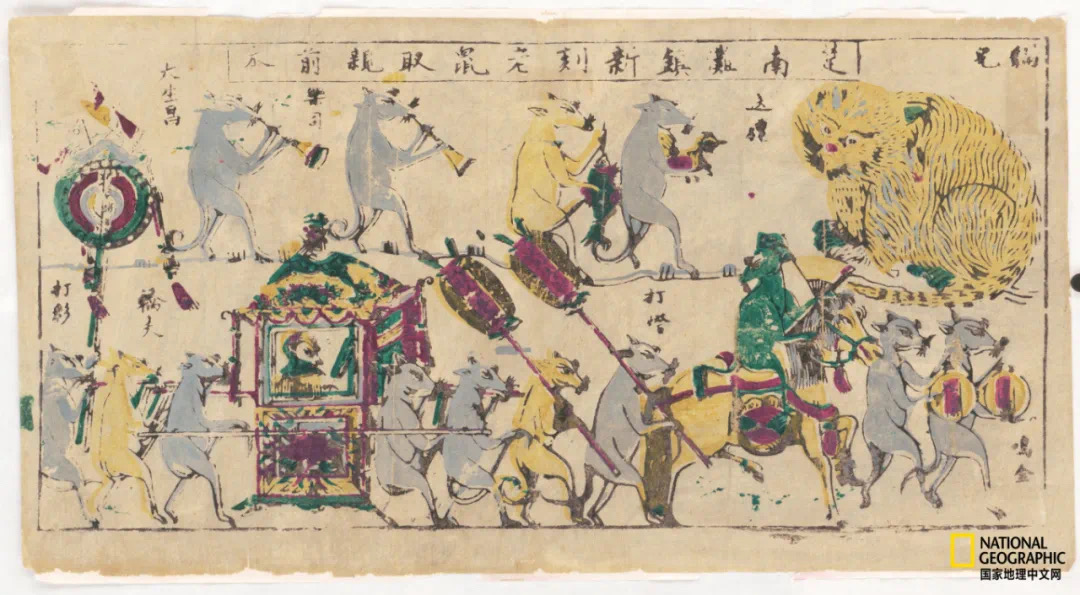 楚南灘鎮新刻老鼠取親前本
貓兒
送禮
樂司
大生昌
打燈
轎夫
打
鳴金
NATIONAL
GEOGRAPHIC
国家地理中文网